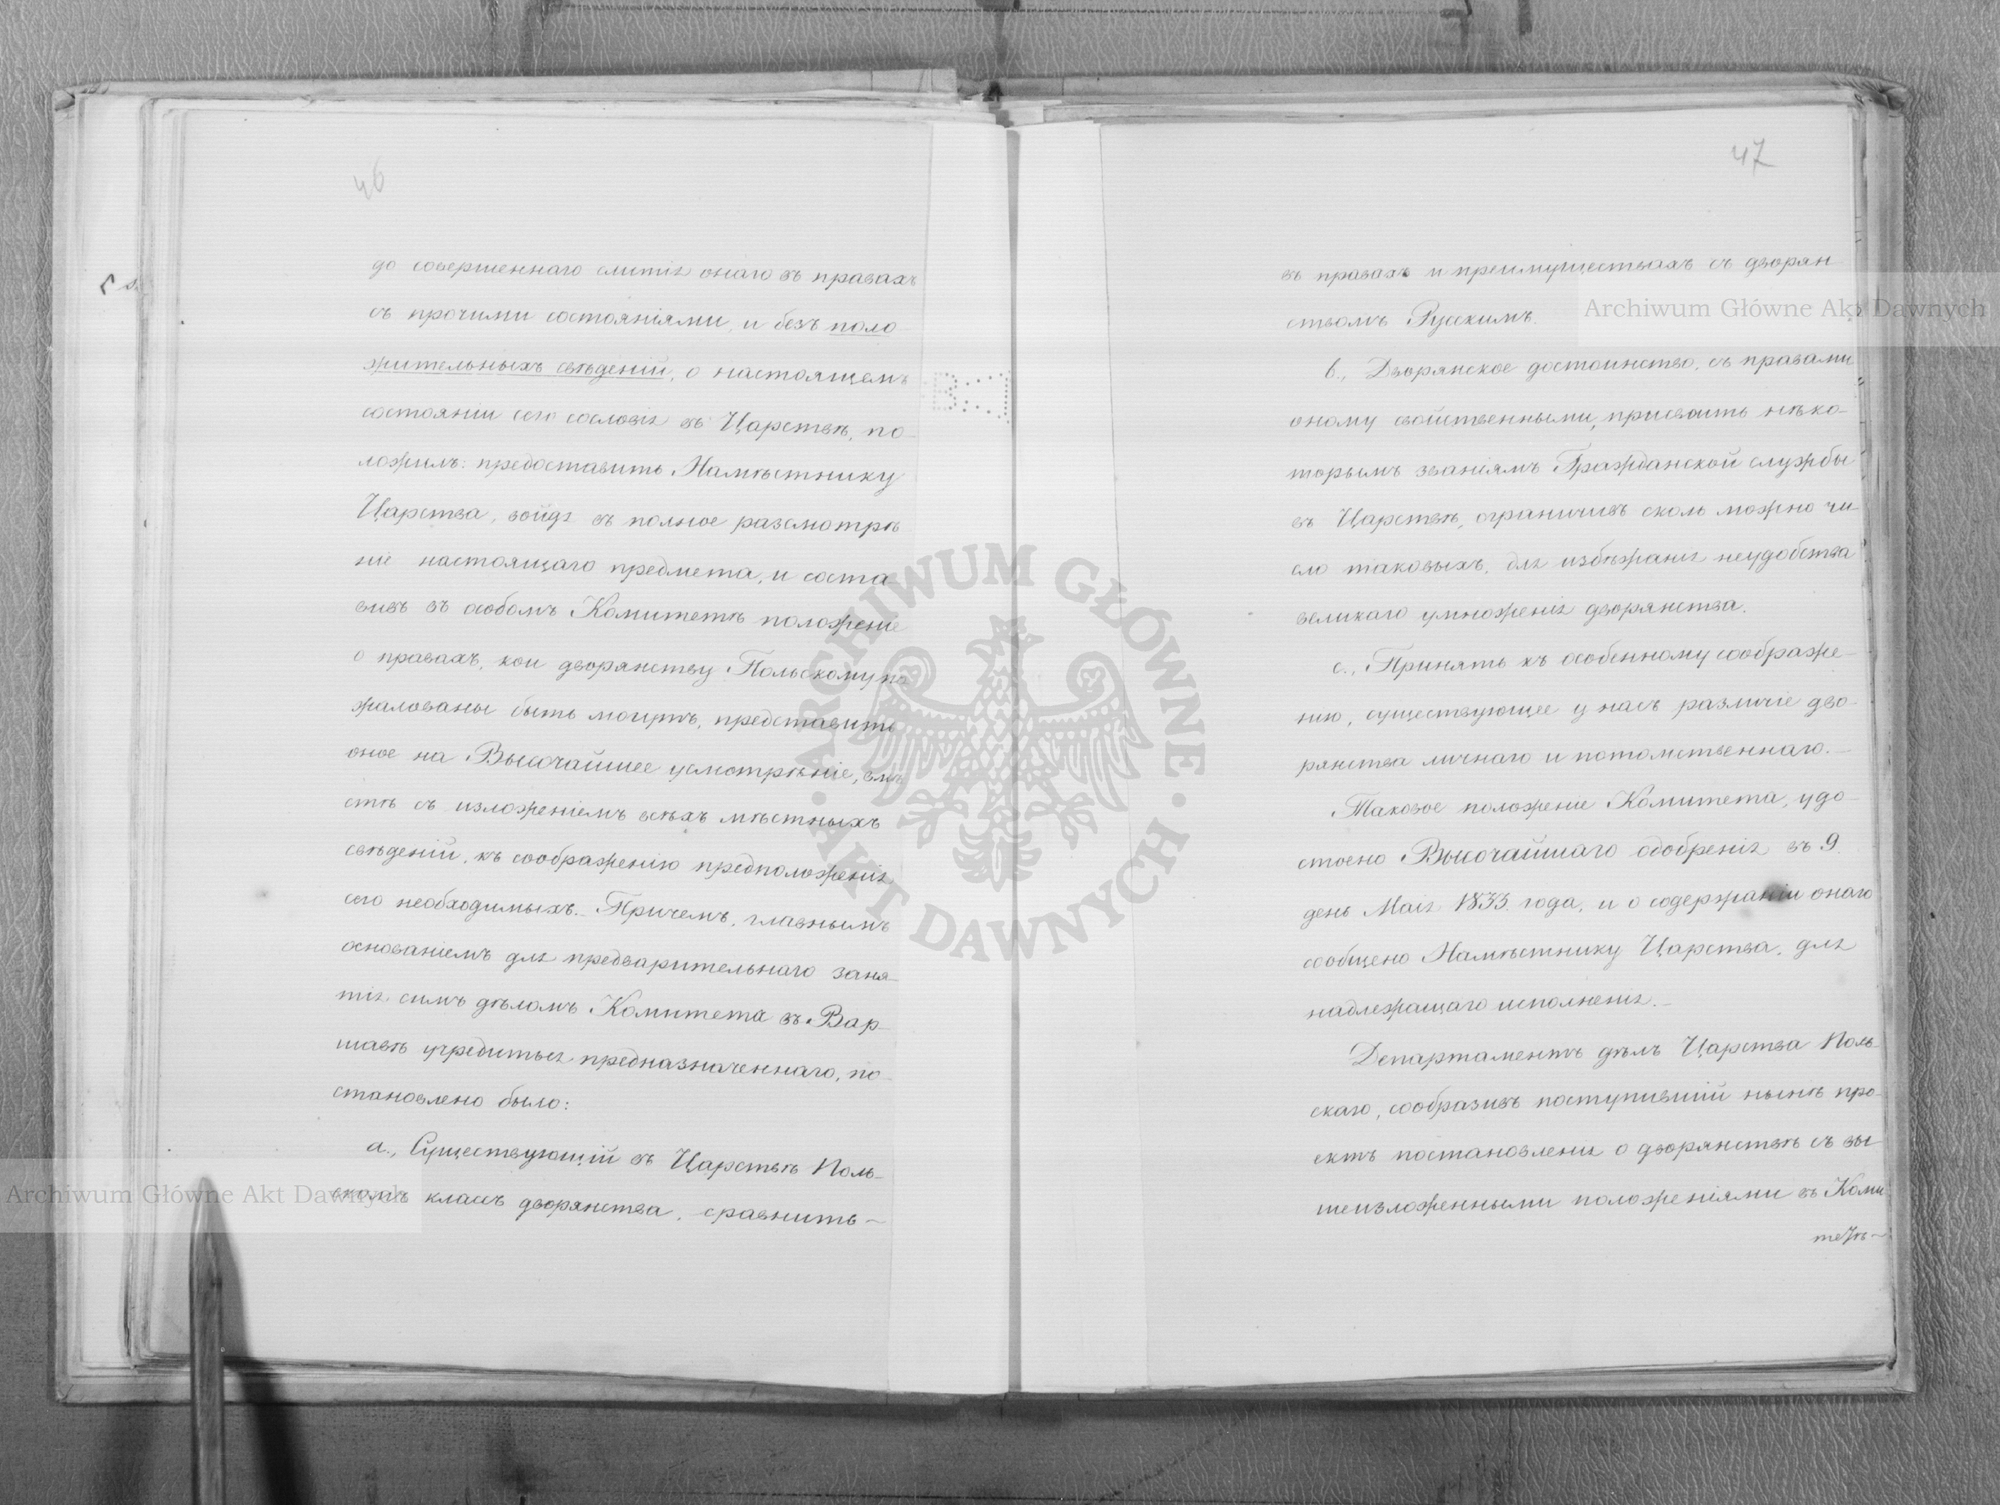 46
до совершеннаго слитія онаго въ правахъ
съ прочими состояніями, и безъ поло
жительныхъ свѣденій, о настоящемъ
состояніи сего сословія въ Царствѣ, по-
ложилъ: предоставить Намѣстнику
Царства, войдя въ полное разсмотрѣ
ніе настоящаго предмета, и соста
вивъ въ особомъ Комитетѣ положеніе
о правахъ, кои дворянству Польскому по
жалованы быть могутъ, представить
оное на Высочайшее усмотрѣніе, вмѣ
стѣ съ изложеніемъ всѣхъ мѣстныхъ
свѣденій, къ соображенію предположенія
сего необходимыхъ. Причемъ, главнымъ
основаніемъ для предварительнаго заня-
тія симъ дѣломъ Комитета въ Вар
шавѣ учредиться предназначеннаго, по-
становлено было:
а., Существующій въ Царствѣ Поль-
скомъ классъ дворянства, сравнить
47
въ правахъ и преимуществахъ съ дворян
ствомъ Русскимъ.
b., Дворянское достоинство, съ правами
оному свойственными, присвоить нѣко-
торымъ званіямъ Гражданской службы
въ Царствѣ, ограничивъ сколь можно чи-
сло таковыхъ, для избѣжанія неудобства
великаго умноженія дворянства.
с., Принять къ особенному соображе-
нію, существующее у насъ различіе дво-
рянства личнаго и потомственнаго.
Таковое положеніе Комитета, удо-
стоено Высочайшаго одобренія въ 9.
день Маія 1833. года, и о содержаніи онаго
сообщено Намѣстнику Царства, для
надлежащаго исполненія.
Департаментъ дѣлъ Царства Поль
скаго, сообразивъ поступившій нынѣ про-
ектъ постановленія о дворянствѣ съ вы
шеизложенными положеніями въ Коми
тетѣ
Archiwum Główne Akt Dawnych
Archiwum Główne Akt Dawnych
ARCHIWUM GŁÓWNE
AKT DAWNYCH